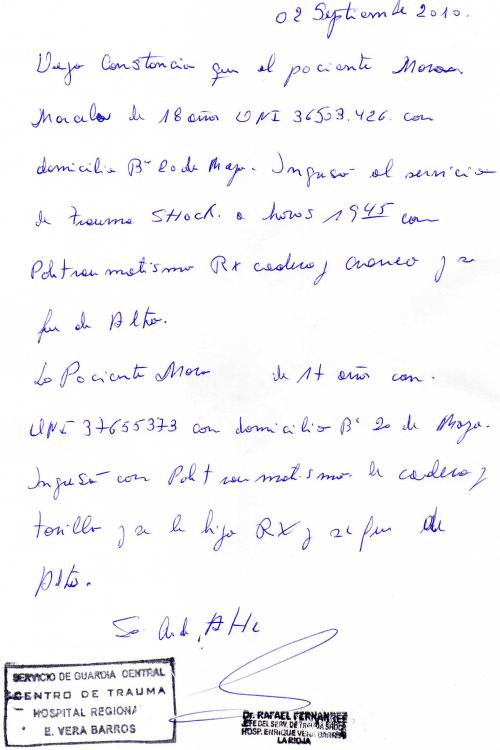 02 Septiembre 2010.
Dejo Constancia que el paciente
Marcelo de 18 años DNI 36503.426. con
domicilio Bº 20 de Mayo. Ingresó al servicio
de trauma SHock. a horas 1945 con
Politraumatismo RX cadera y craneo y se
fue de Alta.
La Paciente de 17 años con.
DNI 37655373 con domicilio Bº 20 de Mayo.
Ingresó con Politraumatismo de cadera y
tobillo y se le hizo RX y se fue de
Alta.
SERVICIO DE GUARDIA CENTRAL
CENTRO DE TRAUMA
HOSPITAL REGIONAL
E. VERA BARROS
Dr. RAFAEL FERNANDEZ
JEFE DEL SERV. DE TRAUMA SHOCK
HOSP. ENRIQUE VERA BARROS
LA RIOJA